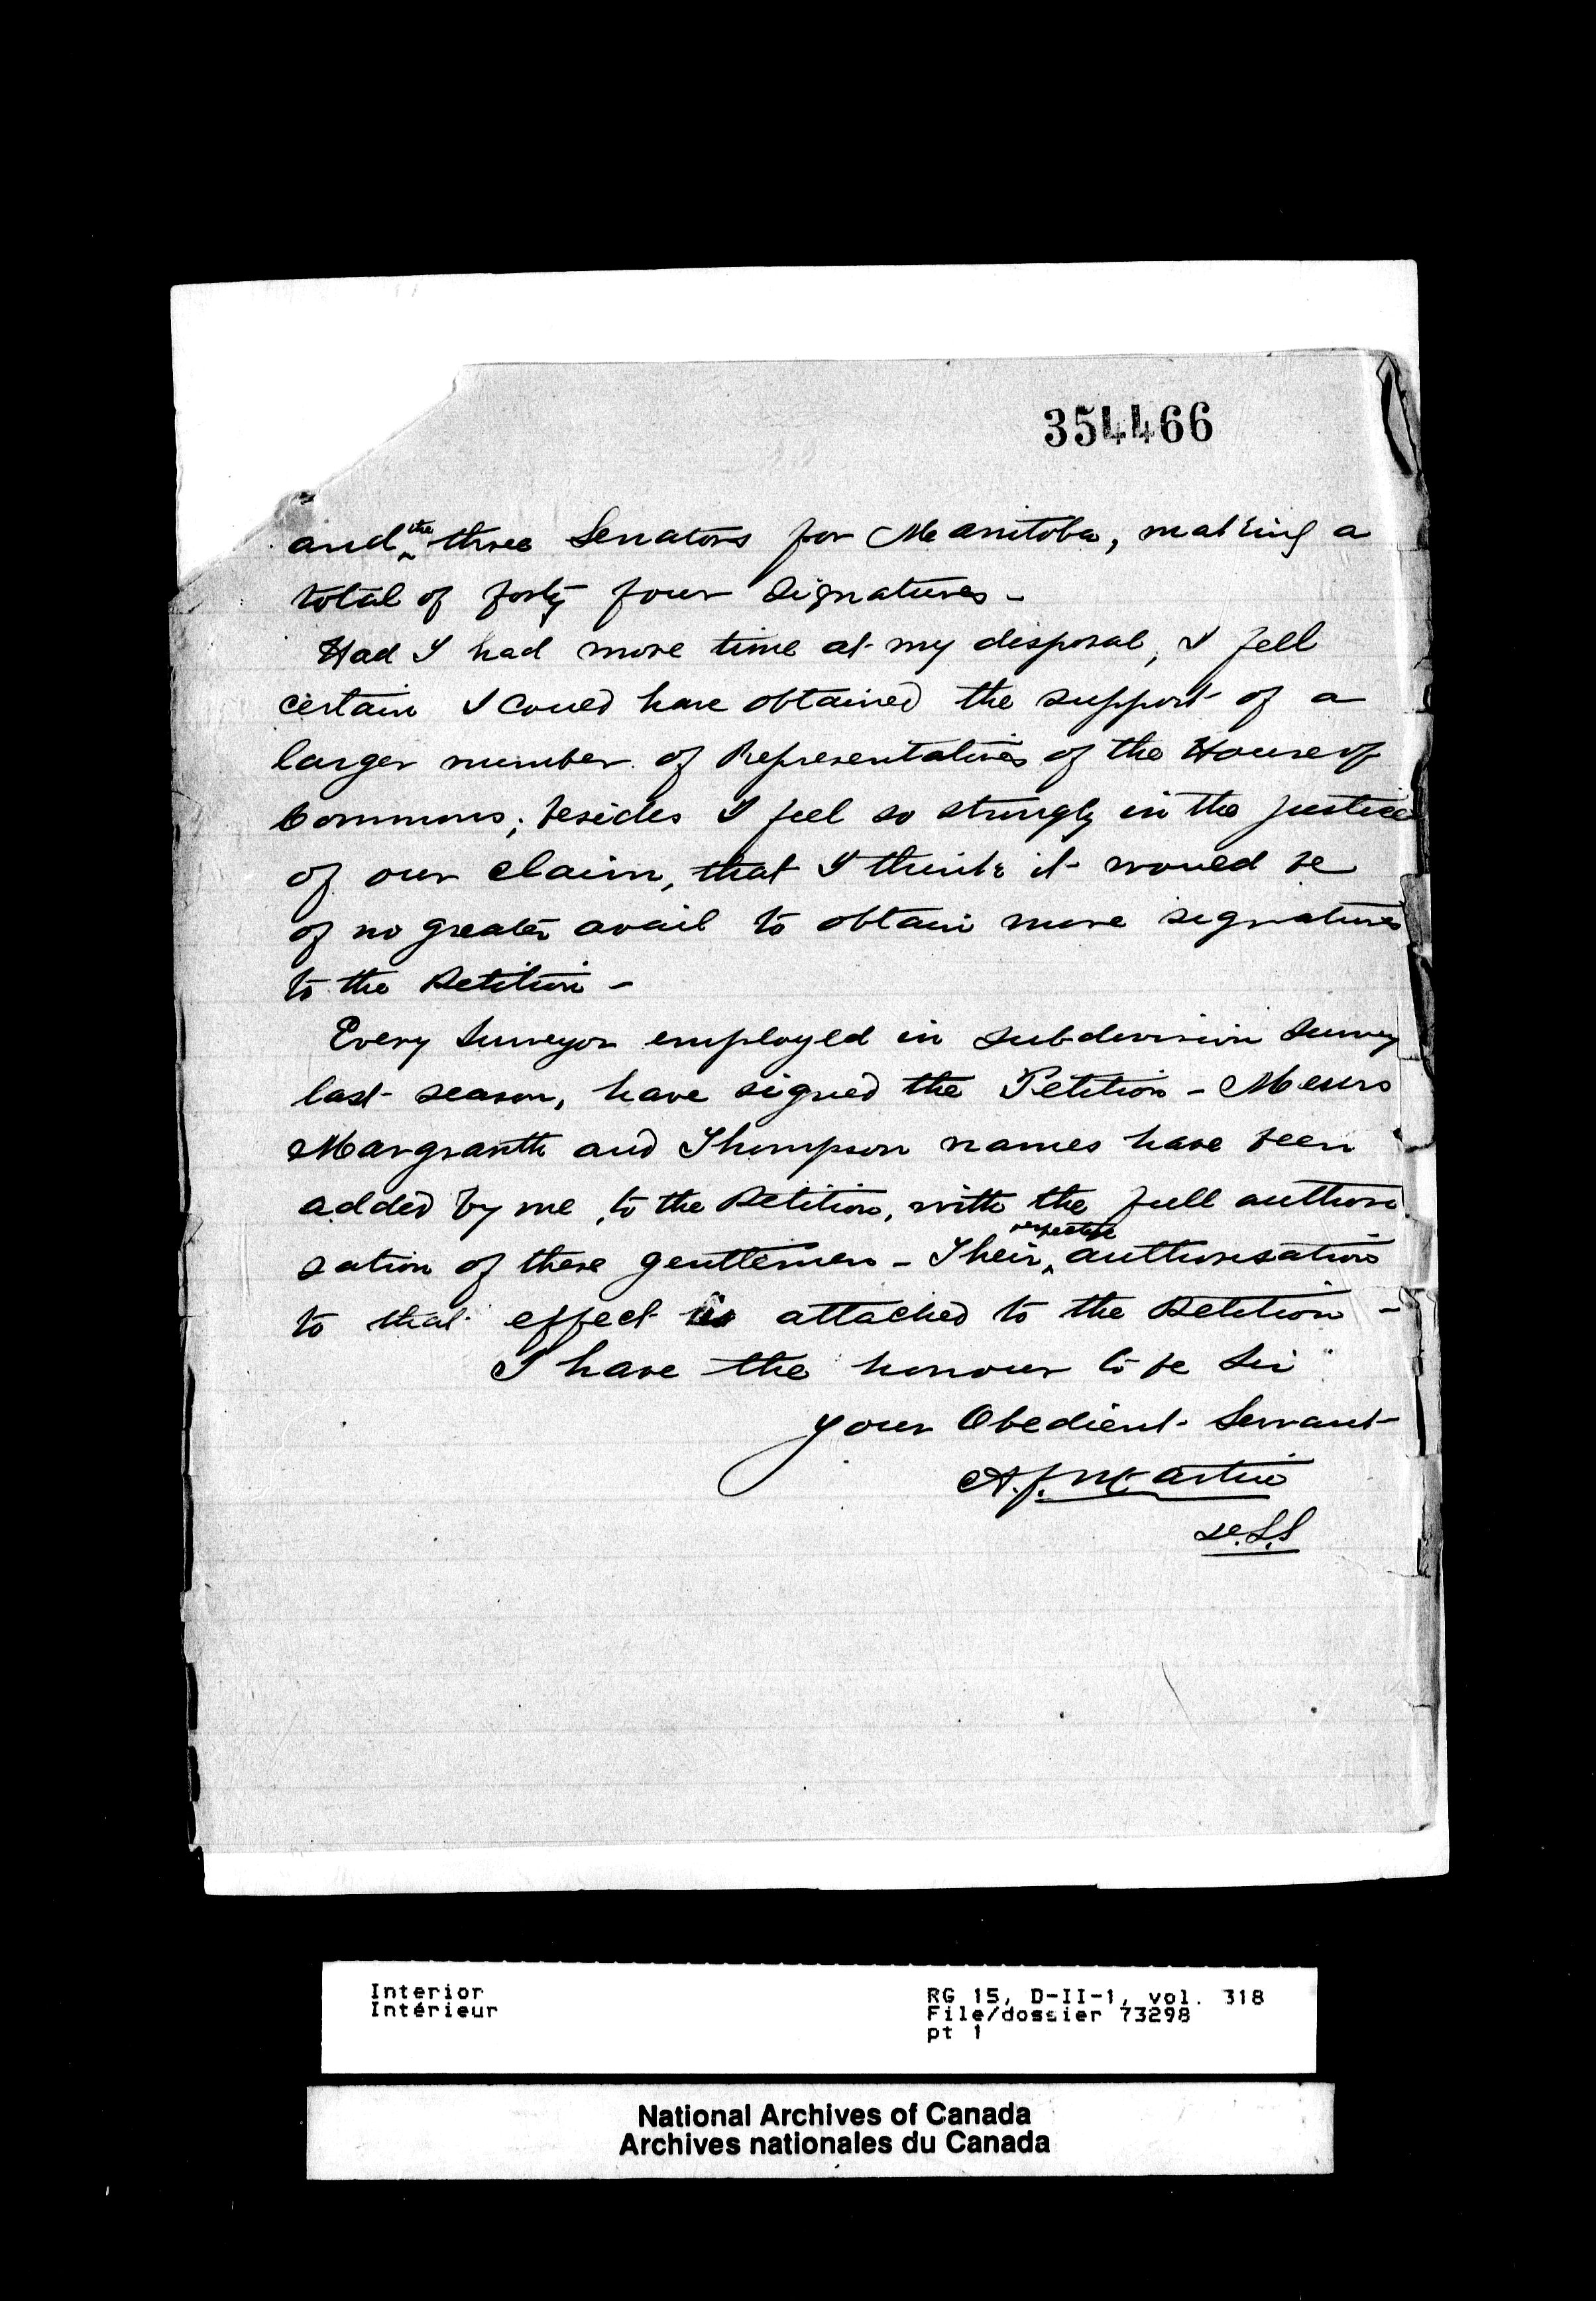 354466
and the three Senators for Manitoba, making a
total of forty four Signatures -
Had I had more time at my disposal, I fell
certain I could have obtained the support of a
larger number of Representatives of the House of
Commons; besides I feel so strongly in the justice
of our claim, that I think it would be
of no greater avail to obtain more signatures
to the Petition -
Every Surveyor employed in subdivision survey
last season, have signed the Petition - Messrs
and Thompson names have been
added by me, to the Petition, with the full authori
sation of these gentlemen - Their respective authorisation
to that effect is attached to the Petition -
I have the honour to be Sir
your Obedient Servant
D.L.S
Interior
Intérieur
RG 15, D-II-1, vol. 318
File/dossier 73298
pt 1
National Archives of Canada
Archives nationales du Canada